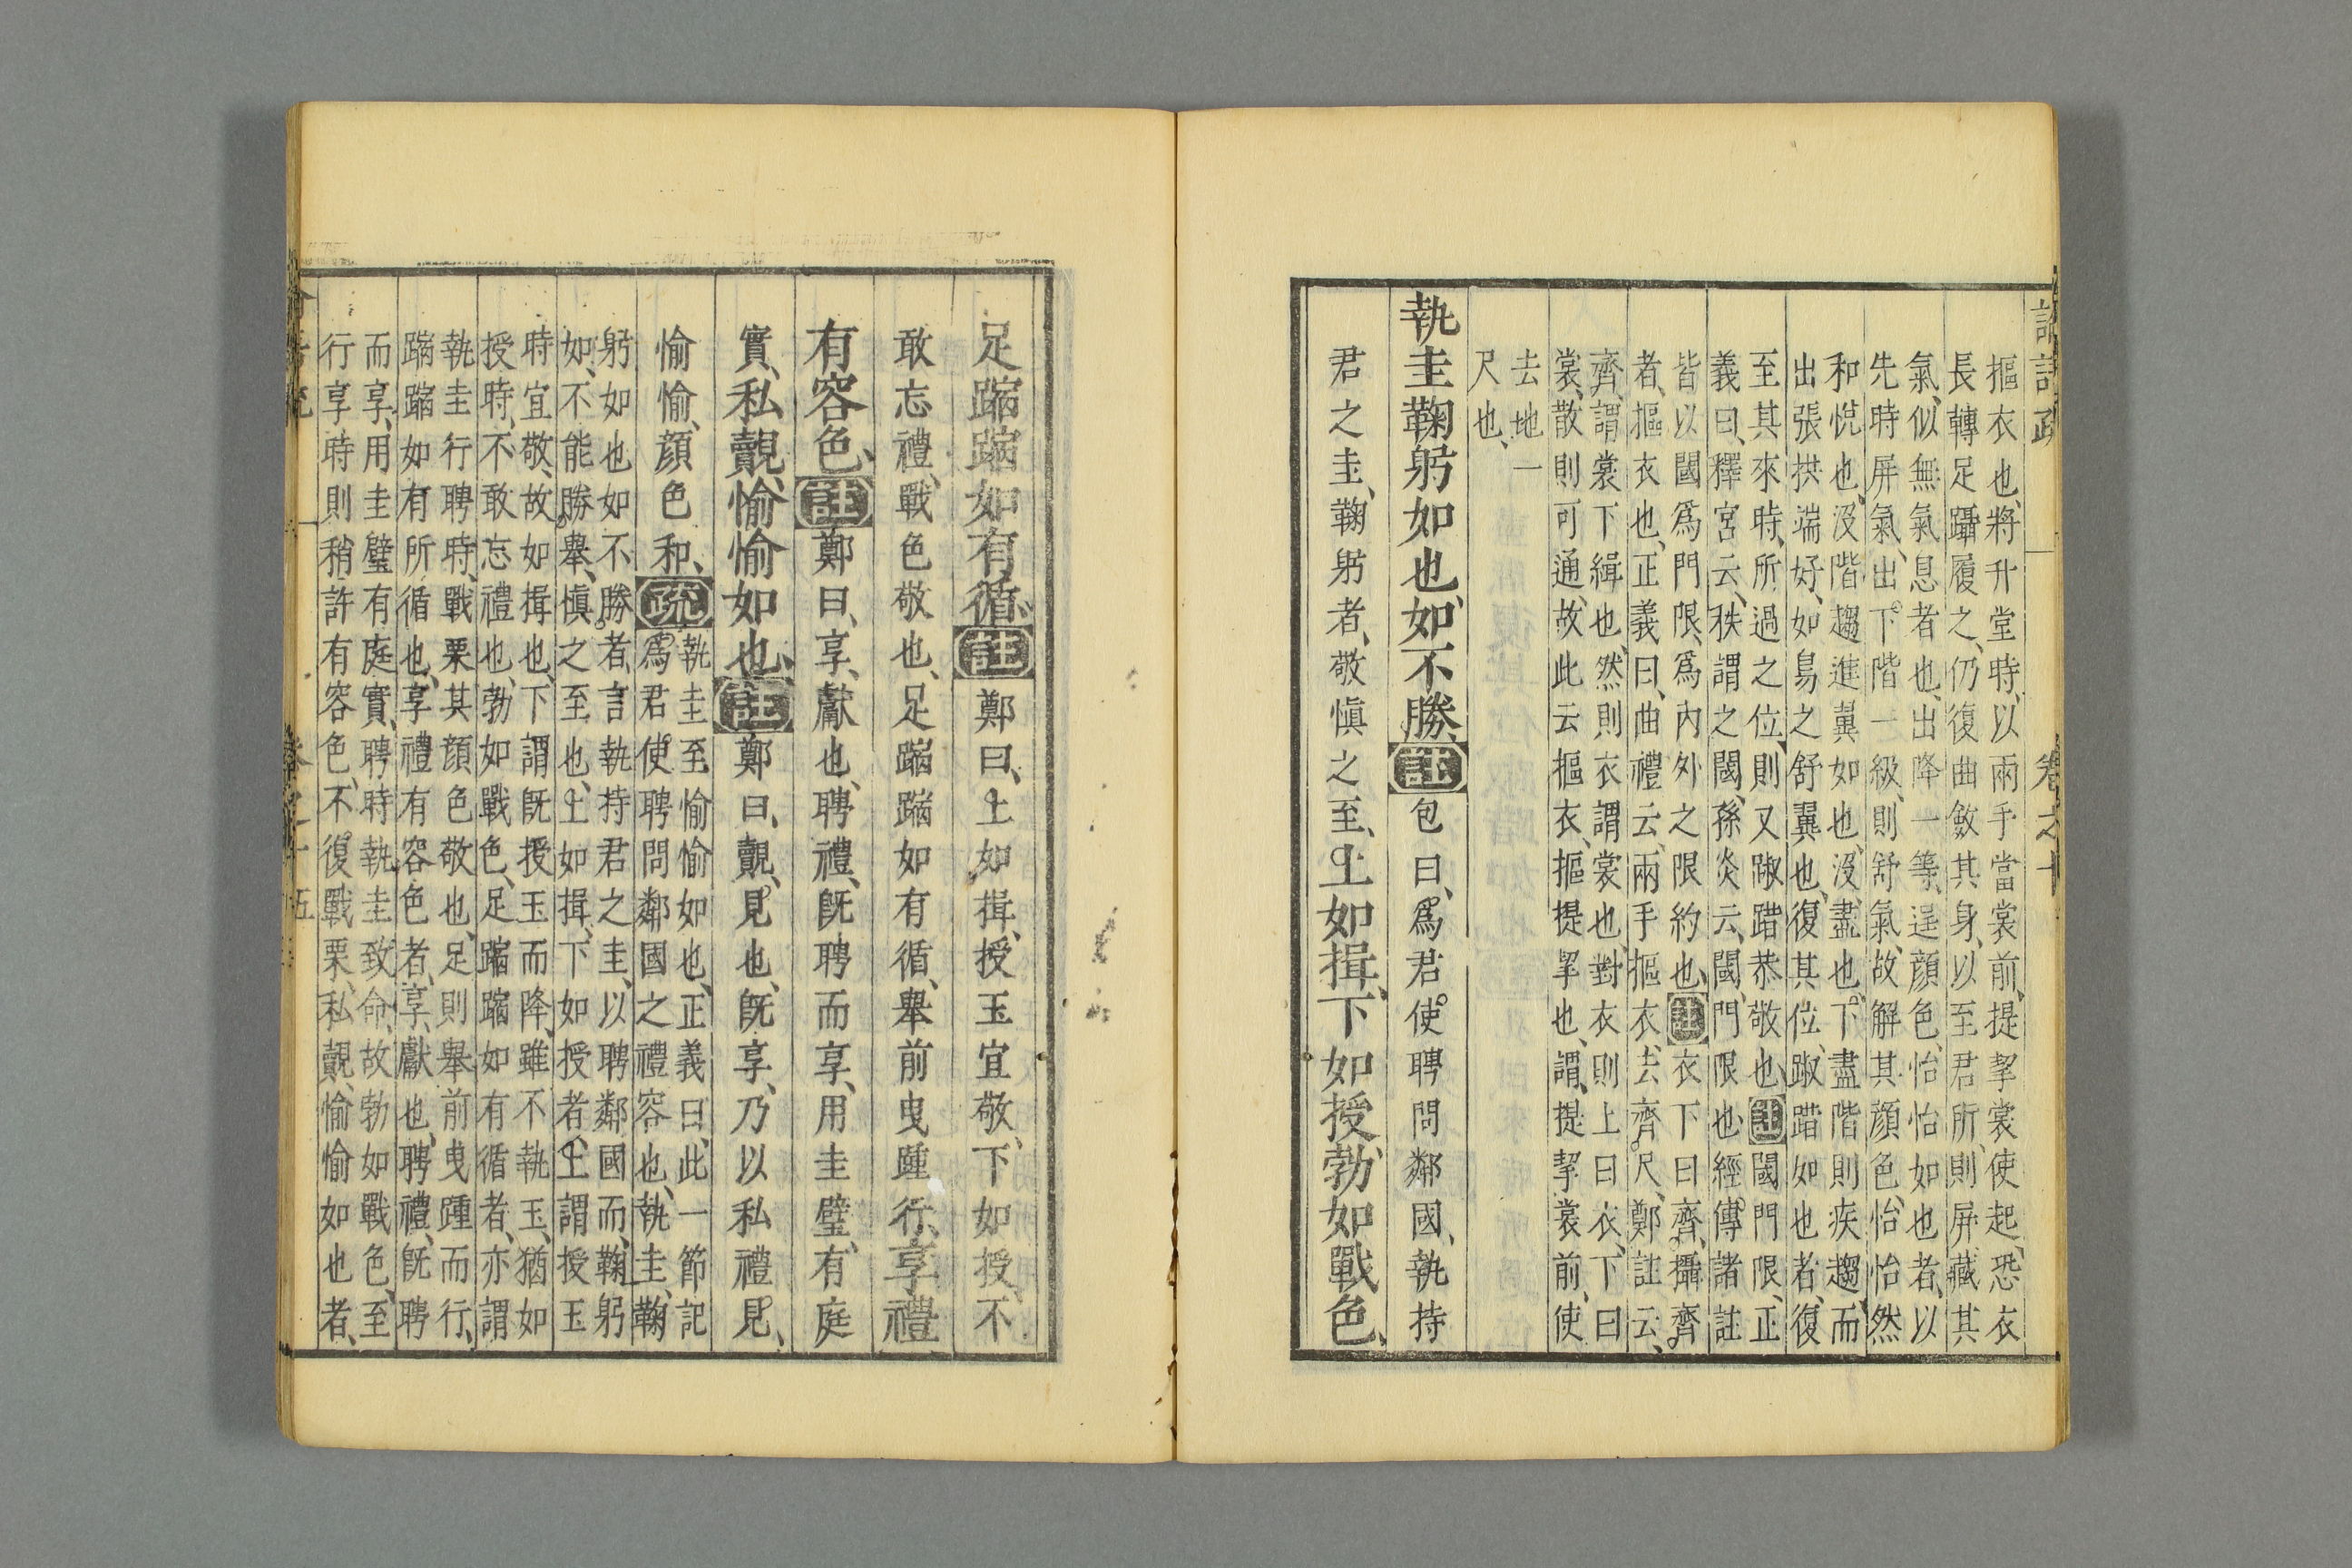 摳衣也、將升堂時、以兩手當裳前、提挈裳使起、恐衣
長轉足躡履之、仍復曲斂其身、以至君所、則屏藏其
氣、似無氣息者也、出降一等、逞顏色、怡怡如也者、以
先時屏氣、出下階一級、則舒氣、故解其顏色、怡怡然
和悅也、沒階趨進翼如也、沒、盡也、下盡階則疾趨、而
出張拱端好、如鳥之舒翼也、復其位、踧踖如也者、復
至其來時、所過之位、則又踧踖恭敬也、註閾門限、正
義曰、釋宮云、秩謂之閾、孫炎云、閾、門限也、經傳諸註
皆以閾爲門限、爲內外之限約也、註衣下曰齊、攝齊
者、摳衣也、正義曰、曲禮云、兩手摳衣、去齊尺、鄭註云、
齊、謂裳下緝也、然則衣謂裳也、對衣則上曰衣、下曰
裳、散則可通、故此云摳衣、摳提挈也、謂、提挈裳前、使
去地一
尺也、
執圭鞠躬如也、如不勝、註包曰、爲君使聘問鄰國、執持
君之圭、鞠躬者、敬愼之至、上如揖、下如授、勃如戰色、
足蹜蹜如有循、註鄭曰、上如揖、授玉宜敬、下如授、不
敢忘禮、戰色敬也、足蹜蹜如有循、舉前曳踵行、享禮、
有容色、註鄭曰、享、獻也、聘禮、旣聘而享、用圭璧、有庭
實、私覿、愉愉如也、註鄭曰、覿、見也、旣享、乃以私禮見、
愉愉、顏色和、疏執圭至愉愉如也、正義曰、此一節記
爲君使聘問鄰國之禮容也、執圭、鞠
躬如也如不勝者、言執持君之圭、以聘鄰國而、鞠躬
如、不能勝舉、愼之至也、上如揖、下如授者、上謂授玉
時宜敬、故如揖也、下謂旣授玉而降、雖不執玉、猶如
授時、不敢忘禮也、勃如戰色、足蹜蹜如有循者、亦謂
執圭行聘時、戰栗其顏色敬也、足則舉前曳踵而行、
蹜蹜如有所循也、享禮有容色者、享、獻也、聘禮、旣聘
而享、用圭璧有庭實、聘時執圭致命、故勃如戰色、至
行享、時則稍許有容色、不復戰栗、私覿、愉愉如也者、